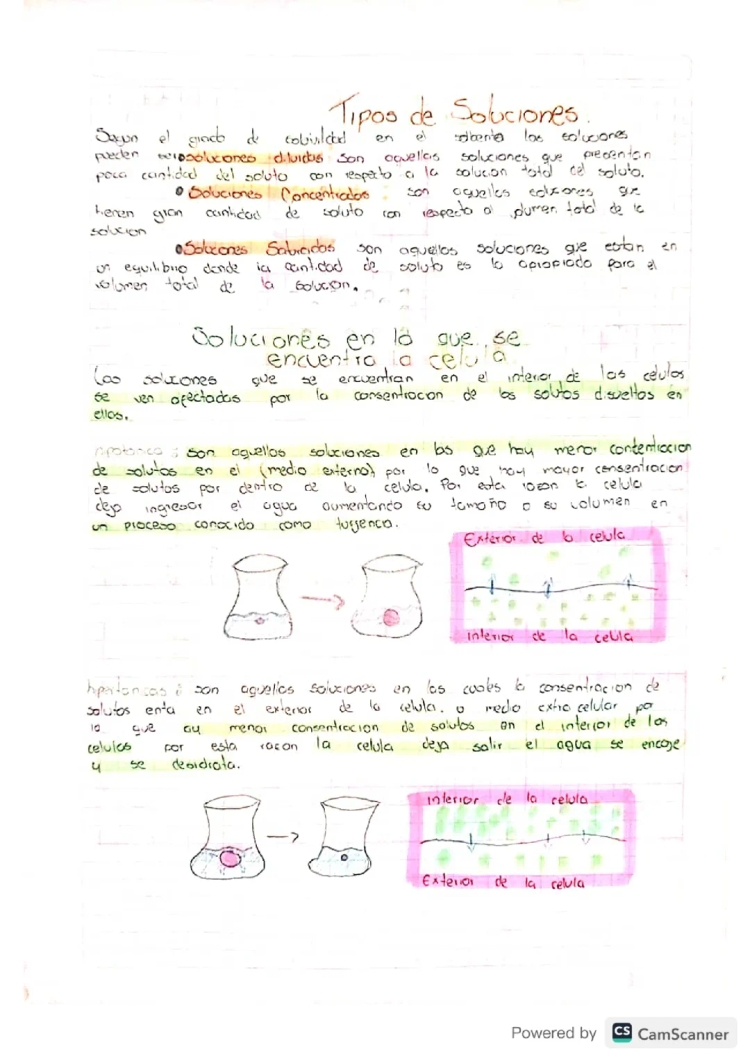 Tipos de Soluciones.
Segun el grado de solubilidad en el las soluciones
pueden soluciones diluidas son aquellas soluciones que presentan
poca cantidad del soluto con respecto a la solucion total del soluto.
Soluciones Concentradas son aquellas que
tienen gran cantidad de soluto con respecto al total de la
solucion
Soluciones son aquellas soluciones que estan en
un equilibrio donde la cantidad de soluto es lo apropiado para el
volumen total de la solucion.
Soluciones en la que se
encuentra la celula
Las soluciones que se encuentran en el interior de las celulas
se ven afectadas por la consentracion de los solutos disueltos en
ellas.
: son aquellas soluciones en las que hay menor
de solutos en el (medio externo) por lo que hay mayor consentracion
de solutos por dentro de la celula. Por esta la celula
deja ingresar el agua aumentando su tamaño o su volumen en
un proceso conocido como
Exterior de la celula
interior de la celula
: son aquellas soluciones en las cuales la consentracion de
solutos enta en el exterior de la celula. o medio celular por
lo que ay menor consentracion de solutos en el interior de las
celulas por esta racon la celula deja salir el agua se encoje
y se desidrata.
interior de la celula
Exterior de la celula
Powered by CS CamScanner